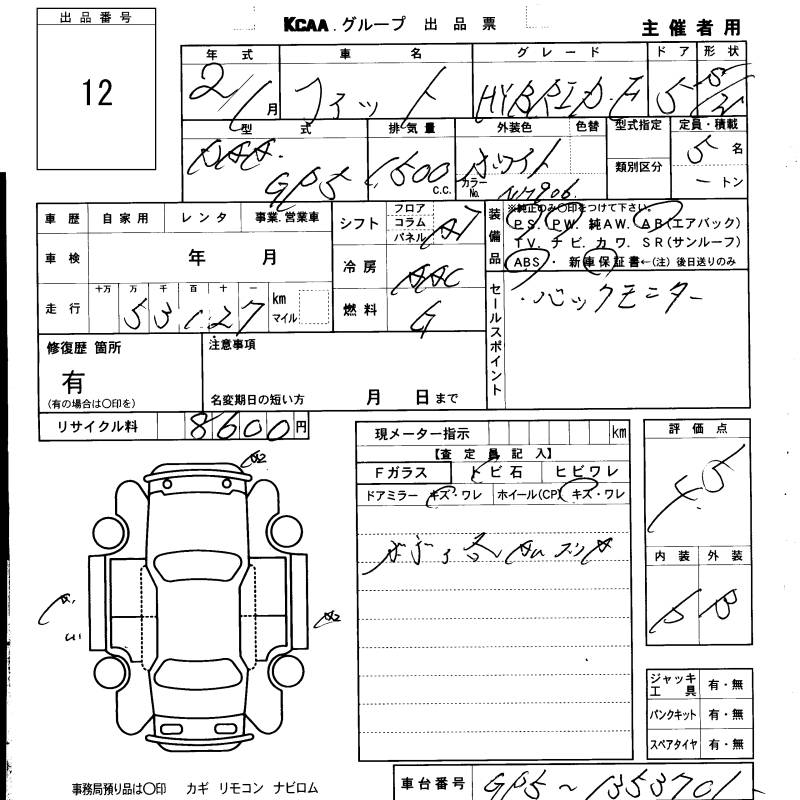 出品番号
12
KCAA.グループ 出品票
主催者用
年式 車名 グレード ドア 形状
2/1月 フィット HYBRID.F 5 5/W
型式 排気量 外装色 色替 型式指定 定員・積載
DAA. GP5 1500 C.C. ホワイト カラーNo. NH906 類別区分 5名
ートン
車歴 自家用 レンタ 事業.営業車
シフト フロア コラム パネル AT
装備品 ※純正のみ〇印をつけて下さい。
P.S. P.W. 純A.W. A.B(エアバック)
T.V. ナビ. カワ. S.R(サンルーフ)
ABS・新車保証書←(注)後日送りのみ
車検 年 月
冷房 AAC
セールスポイント ・バックモニター
走行 十万 万 千 百 十 一
53127 km マイル
燃料 G
修復歴 箇所
有
(有の場合は〇印を)
注意事項
名変期日の短い方 月 日まで
リサイクル料 8600円
現メーター指示 km
【査定員記入】
Fガラス トビ石 ヒビワレ
ドアミラー キズ・ワレ ホイール(CP) キズ・ワレ
評価点
4.5
内装 外装
B B
A2
A1
A2
ジャッキ工具 有・無
パンクキット 有・無
スペアタイヤ 有・無
事務局預り品は〇印 カギ リモコン ナビロム
車台番号 GP5～1353701